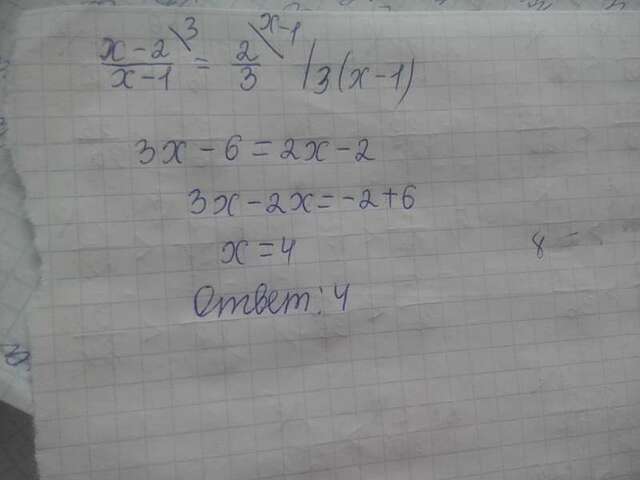 x - 2\3 / x - 1 = 2\x-1 / 3 | 3(x - 1)
3x - 6 = 2x - 2
3x - 2x = -2 + 6
x = 4
Ответ: 4